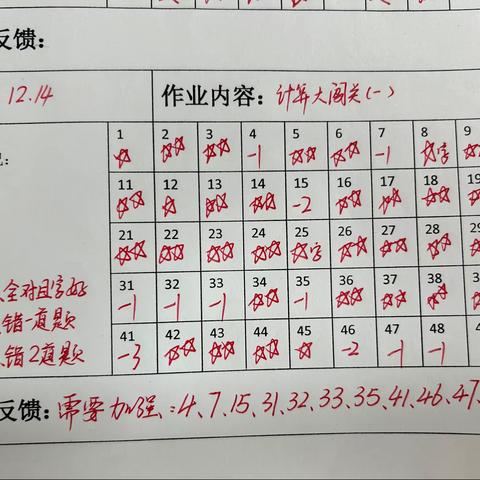 反馈：
12.14 作业内容：计算大闯关(一)
1 2 3 4 5 6 7 8 9
-1 -1 字
11 12 13 14 15 16 17 18 19
-2
21 22 23 24 25 26 27 28 29
字
全对且字好
31 32 33 34 35 36 37 38 39
-1 -1 -1 -1
错一道题
41 42 43 44 45 46 47 48
-3 -2 -1 -1
错2道题
反馈：需要加强：4、7、15、31、32、33、35、41、46、47、